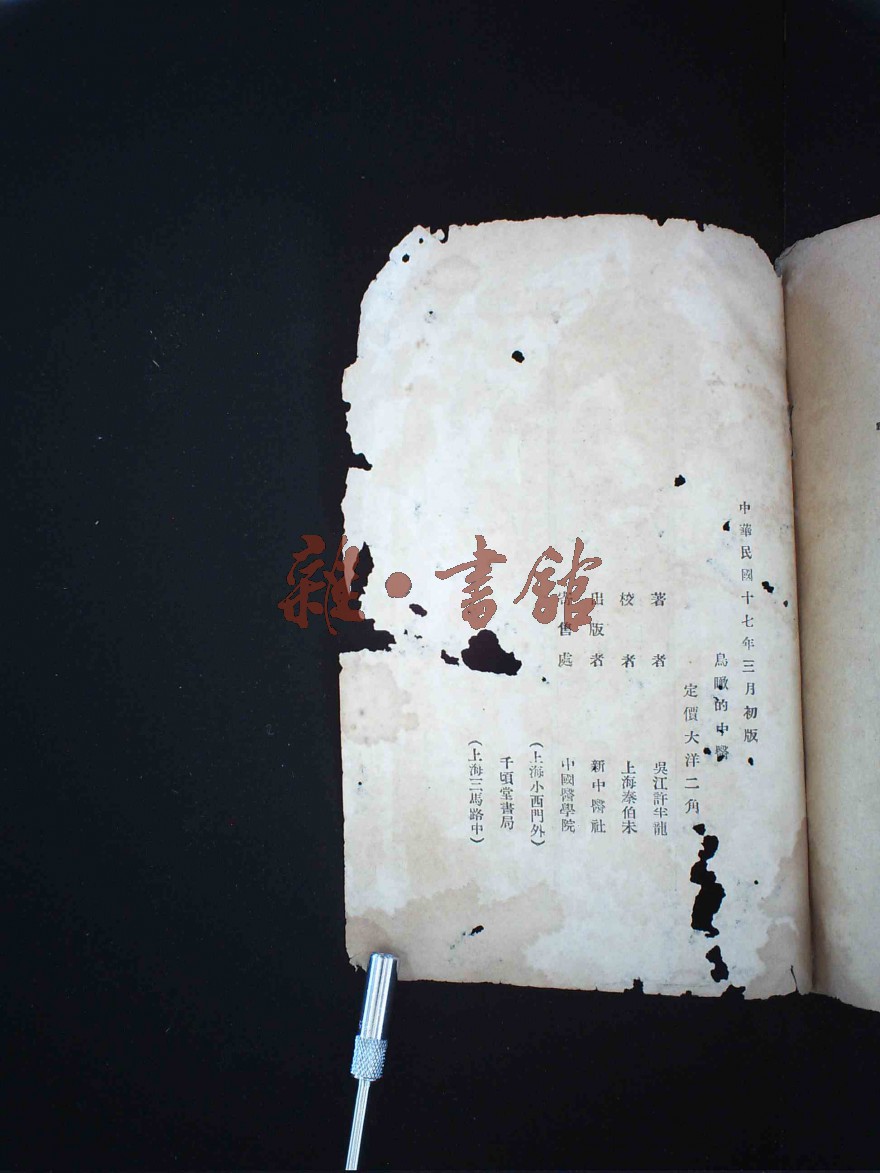 中華民國十七年三月初版
鳥瞰的中醫
定價大洋二角
著者 吳江許半龍
校者 上海秦伯未
出版者 新中醫社
寄售處 中國醫學院
(上海小西門外)
千頃堂書局
(上海三馬路中)
雜·書館